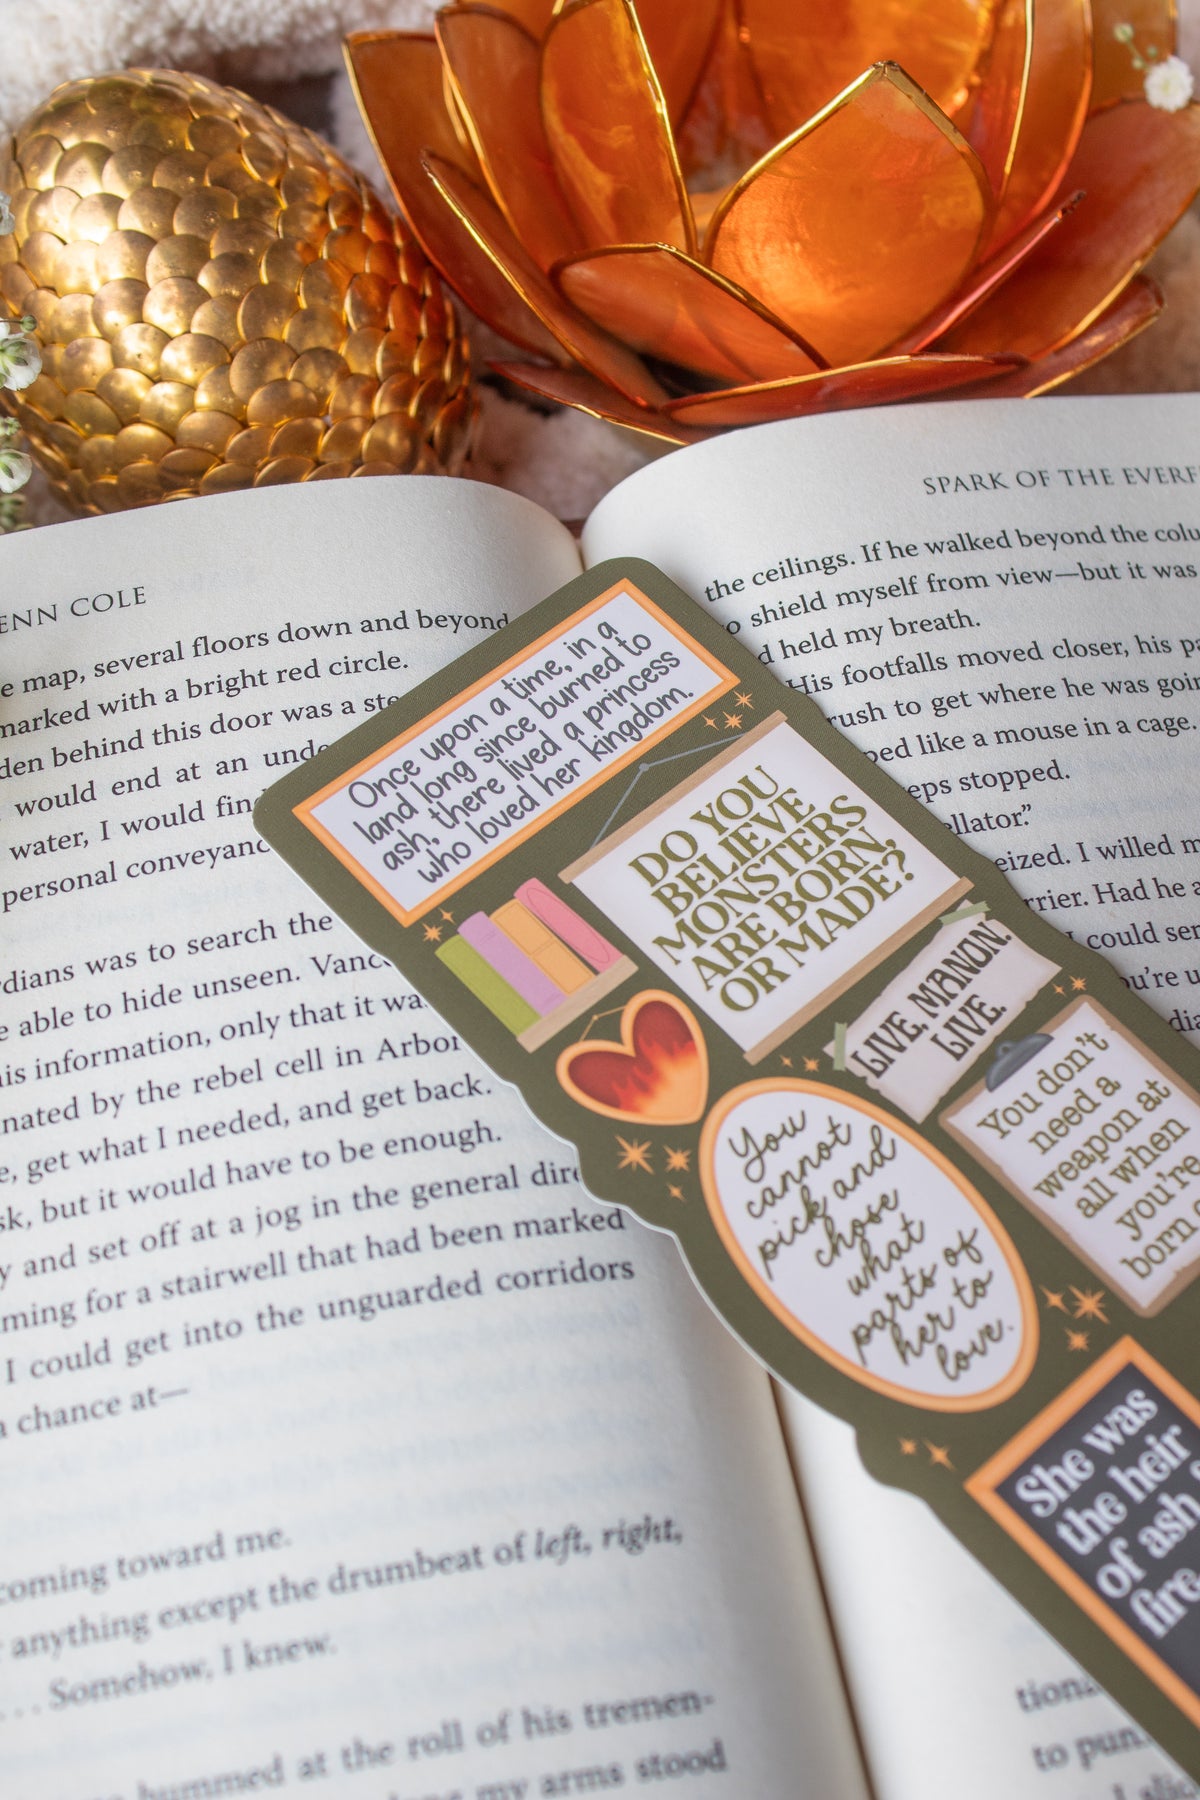 ENN COLE
e map, several floors down and beyond
marked with a bright red circle.
den behind this door was a
would end at an
water, I would
personal
dians was to search the
e able to hide unseen.
is information, only that it
nated by the rebel cell in Arbor
e, get what I needed, and get back.
sk, but it would have to be enough.
y and set off at a jog in the general
ming for a stairwell that had been marked
I could get into the unguarded corridors
a chance at—
coming toward me.
anything except the drumbeat of left, right,
... Somehow, I knew.
hummed at the roll of his tremen-
my arms stood
SPARK OF THE EVERF
the ceilings. If he walked beyond the colu
o shield myself from view—but it was
d held my breath.
His footfalls moved closer, his pa
rush to get where he was goin
ped like a mouse in a cage.
eps stopped.
ellator.”
eized. I willed m
rrier. Had he a
I could sen
you're u
dia
tiona
to pun
Once upon a time, in a
land long since burned to
ash, there lived a princess
who loved her kingdom.
DO YOU
BELIEVE
MONSTERS
ARE BORN,
OR MADE?
LIVE, MANON.
LIVE.
You don't
need a
weapon at
all when
you're
born
You
cannot
pick and
chose
what
parts of
her to
love.
She was
the heir
of ash
fire